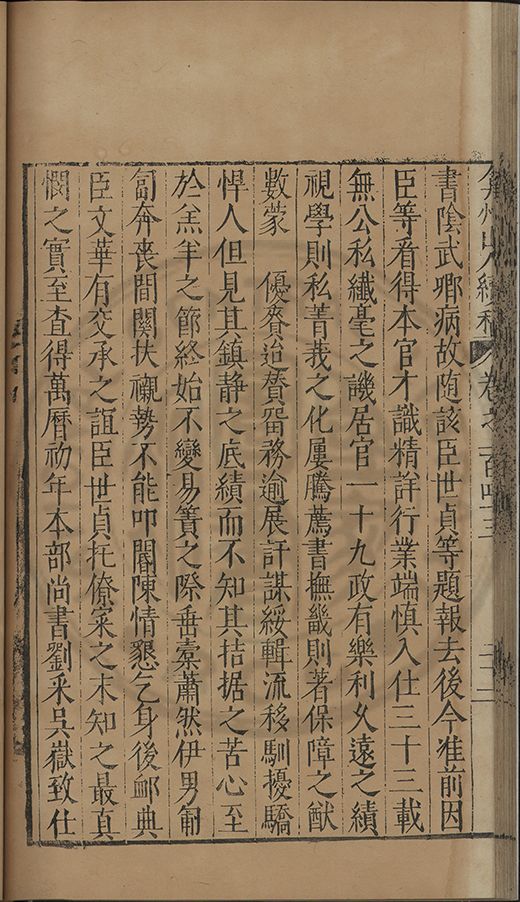 弇州山人續稿 卷之一百四十三
書陰武卿病故隨該臣世貞等題報去後今准前因
臣等看得本官才識精詳行業端慎入仕三十三載
無公私纖毫之譏居官一十九政有樂利久遠之績
視學則私菁莪之化屢騰薦書撫畿則著保障之猷
數蒙 優賚迨贊留務逾展訏謀綏輯流移馴擾驕
悍人但見其鎮静之底績而不知其拮据之苦心至
於羔羊之節終始不變易簀之際垂橐蕭然伊男甫
匐奔喪間關扶櫬勢不能叩閽陳情懇乞身後䘏典
臣文華有交承之誼臣世貞托僚寀之末知之最真
憫之實至查得萬曆初年本部尚書劉采吳嶽致仕